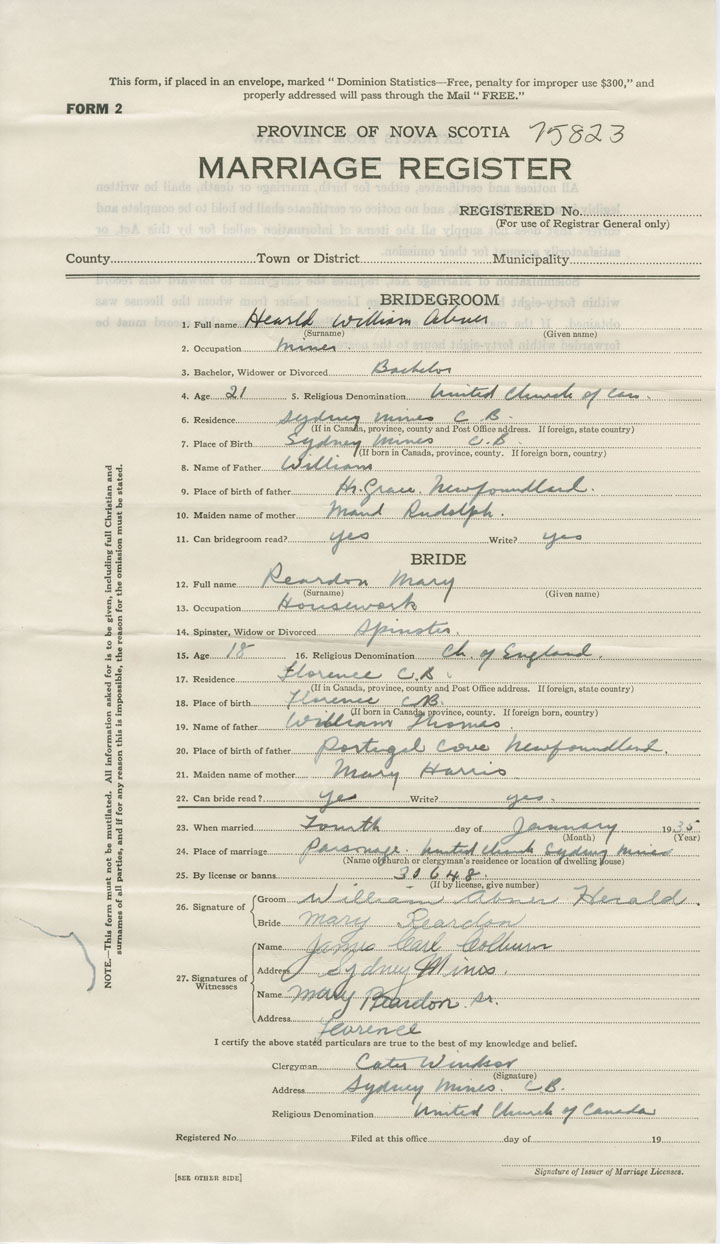 This form, if placed in an envelope, marked " Dominion Statistics—Free, penalty for improper use $300," and
properly addressed will pass through the Mail " FREE."
FORM 2
PROVINCE OF NOVA SCOTIA 75823
MARRIAGE REGISTER
REGISTERED No.
(For use of Registrar General only)
County Town or District Municipality
BRIDEGROOM
1. Full name Hearld William Abner
(Surname) (Given name)
2. Occupation Miner
3. Bachelor, Widower or Divorced Bachelor
4. Age 21 5. Religious Denomination United Church of Can.
6. Residence Sydney Mines C.B.
(If in Canada, province, county and Post Office address. If foreign, state country)
7. Place of Birth Sydney Mines C.B.
(If born in Canada, province, county. If foreign born, country)
8. Name of Father William
9. Place of birth of father Hr. Grace, Newfoundland.
10. Maiden name of mother Maud Rudolph.
11. Can bridegroom read? yes Write? yes
BRIDE
12. Full name Reardon Mary
(Surname) (Given name)
13. Occupation Housework
14. Spinster, Widow or Divorced Spinster.
15. Age 18 16. Religious Denomination Ch. of England.
17. Residence Florence C.B.
(If in Canada, province, county and Post Office address. If foreign, state country)
18. Place of birth Florence C.B.
(If born in Canada, province, county. If foreign born, country)
19. Name of father William Thomas
20. Place of birth of father Portugal Cove Newfoundland.
21. Maiden name of mother Mary Harris
22. Can bride read? yes Write? yes.
23. When married Fourth day of January 1935
(Month) (Year)
24. Place of marriage Parsonage. United Church Sydney Mines
(Name of church or clergyman's residence or location of dwelling house)
25. By license or banns 30648.
(If by license, give number)
26. Signature of Groom William Abner Herald.
Bride Mary Reardon
27. Signatures of Witnesses
Name James Earl Colburn
Address Sydney Mines.
Name Mary Reardon Sr.
Address Florence
I certify the above stated particulars are true to the best of my knowledge and belief.
Clergyman Cater Windsor
(Signature)
Address Sydney Mines. C.B.
Religious Denomination United Church of Canada
Registered No. Filed at this office day of 19
Signature of Issuer of Marriage Licenses.
[SEE OTHER SIDE]
NOTE.—This form must not be mutilated. All information asked for is to be given, including full Christian and
surnames of all parties, and if for any reason this is impossible, the reason for the omission must be stated.